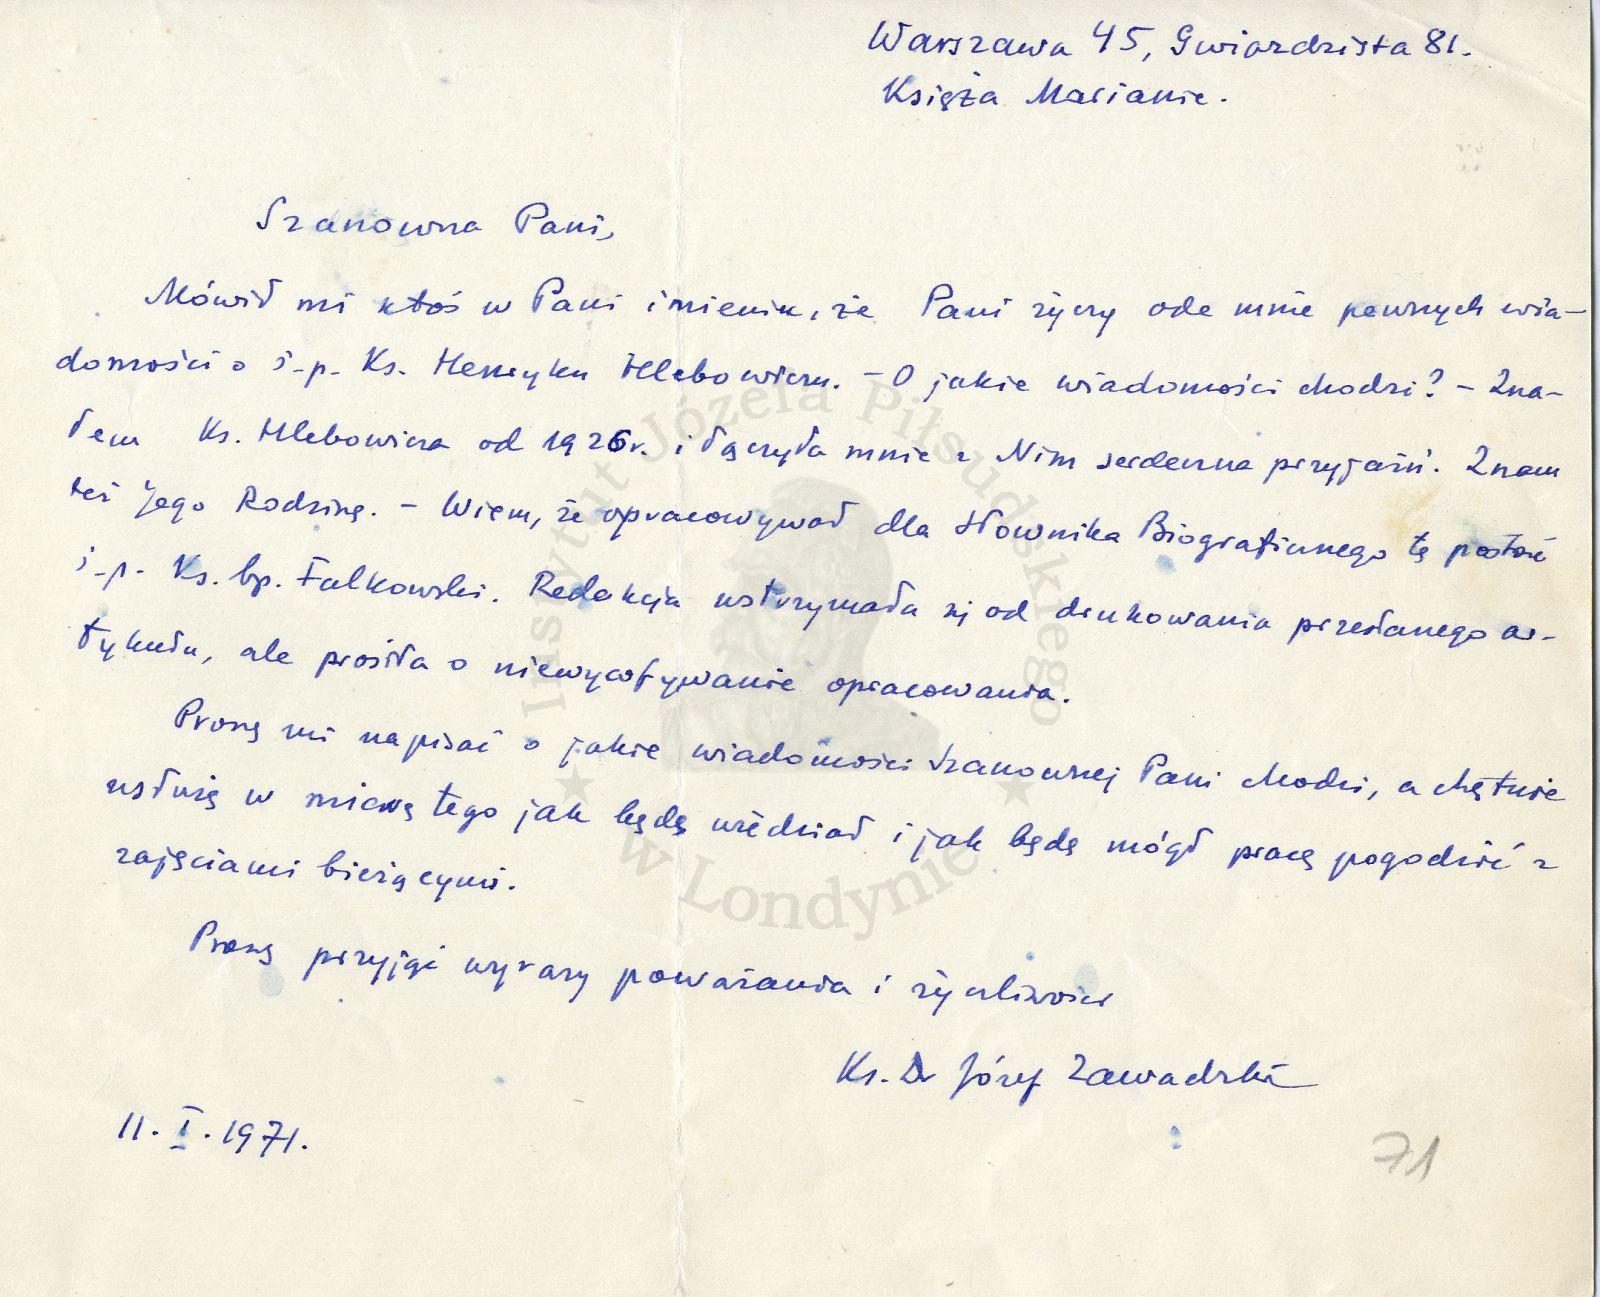 Warszawa 45, Gwiaździsta 81.
Księża Marianie.
Szanowna Pani,
Mówił mi ktoś w Pani imieniu, że Pani życzy ode mnie pewnych wia-
domości o ś-p. Ks. Henryku Hlebowiczu. - O jakie wiadomości chodzi? - Zna-
łem Ks. Hlebowicza od 1926 r. i łączyła mnie z Nim serdeczna przyjaźń. Znam
też Jego Rodzinę. - Wiem, że opracowywał dla Słownika Biograficznego tę postać
ś-p. Ks. bp. Falkowski. Redakcja wstrzymała się od drukowania przesłanego ar-
tykułu, ale prosiła o niewycofywanie opracowania.
Proszę mi napisać o jakie wiadomości Szanownej Pani chodzi, a chętnie
usłużę w miarę tego jak będę wiedział i jak będę mógł pracę pogodzić z
zajęciami bieżącymi.
Proszę przyjąć wyrazy poważania i życzliwości
Ks. Dr Józef Zawadzki
11. I. 1971.
71
Instytut Józefa Piłsudskiego
w Londynie